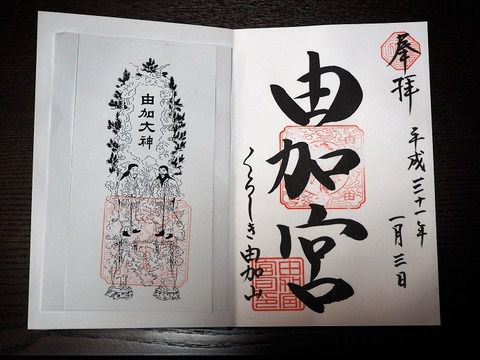 奉拝
平成三十一年
一月三日
由加宮
くらしき 由加山
由加大神